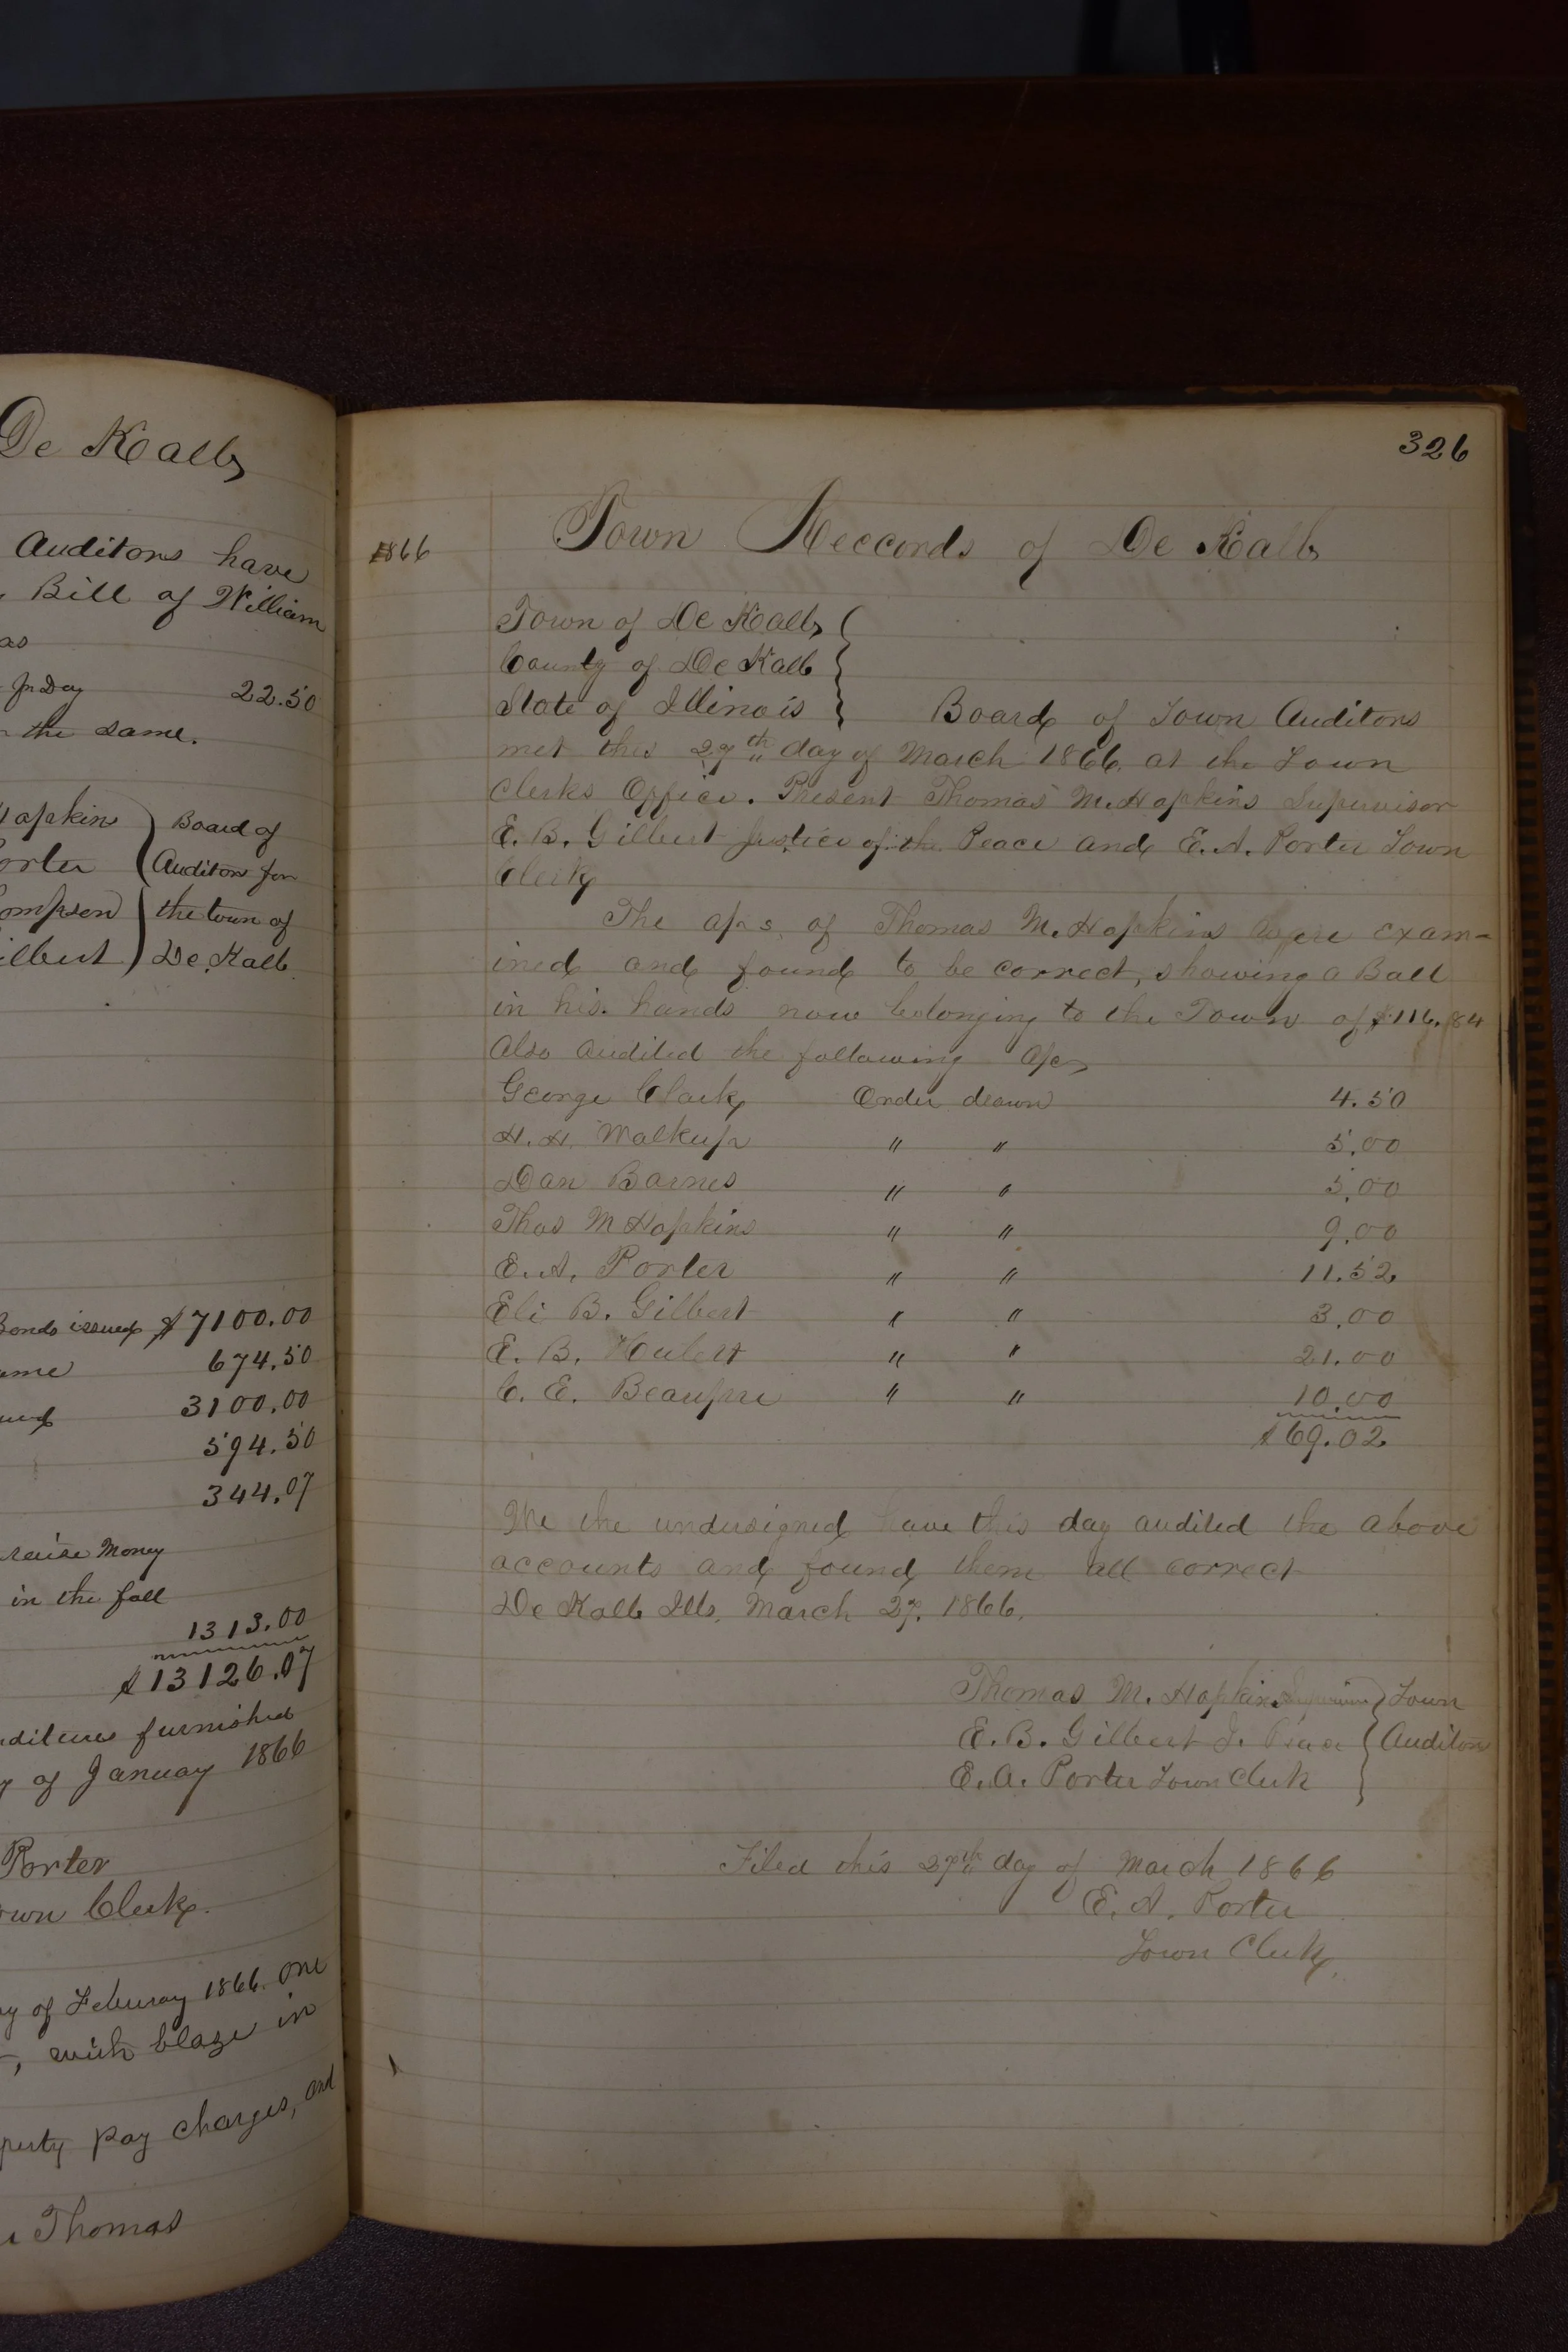 De Kalb
Auditors have
Bill of William
as
22.50
the same.
Hopkin
Board of
Porter
Auditors for
Thompson
the town of
Gilbert
De Kalb.
Bonds issued $7100.00
same 674.50
3100.00
594.50
344.07
raise Money
in the fall
1313.00
$13126.07
furnished
of January 1866
Porter
Town Clerk.
of Feburay 1866. one
, with blaze in
pay charges, and
Thomas
326
1866
Town Reccords of De Kalb
Town of De Kalb
County of De Kalb
State of Illinois Board of Town Auditors
met this 27th day of March 1866. at the Town
Clerks Office. Present Thomas M. Hopkins Supervisor
E. B. Gilbert Justice of the Peace and E. A. Porter Town
Clerk
The a/cs. of Thomas M. Hopkins were exam-
ined and found to be correct, showing a Ball
in his hands now belonging to the Town of $116.84
Also audited the following a/cs
George Clark Order drawn 4.50
H. H. Walkup " " 5.00
Dan Barnes " " 5.00
Thos M Hopkins " " 9.00
E. A. Porter " " 11.52
Eli B. Gilbert " " 3.00
E. B. Hulett " " 21.00
C. E. Beaupre " " 10.00
$69.02
We the undersigned have this day audited the above
accounts and found them all correct
De Kalb Ills. March 27. 1866.
Thomas M. Hopkins Supervisor Town
E. B. Gilbert J. Peace Auditors
E. A. Porter Town Clerk
Filed this 27th day of March 1866
E. A. Porter
Town Clerk.